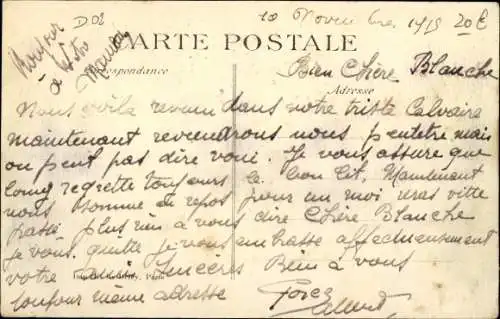 D02
10 Novembre 1915 20 E
Bonjour
a
Maman
CARTE POSTALE
Correspondance
Adresse
Bien Chère Blanche
Nous voila revenu dans notre triste Calvaire
maintenant reviendrons nous peutetre mais
on peut pas dire voui. Je vous assure que
l'on regrette toujours le bon lit. Maintenant
nous somme au repos pour un moi sera vitte
passé plus rien a vous dire Chère Blanche
je vous quitte je vous embrasse affectueusement
votre ami sincères Bien à vous
toujour même adresse
Albert